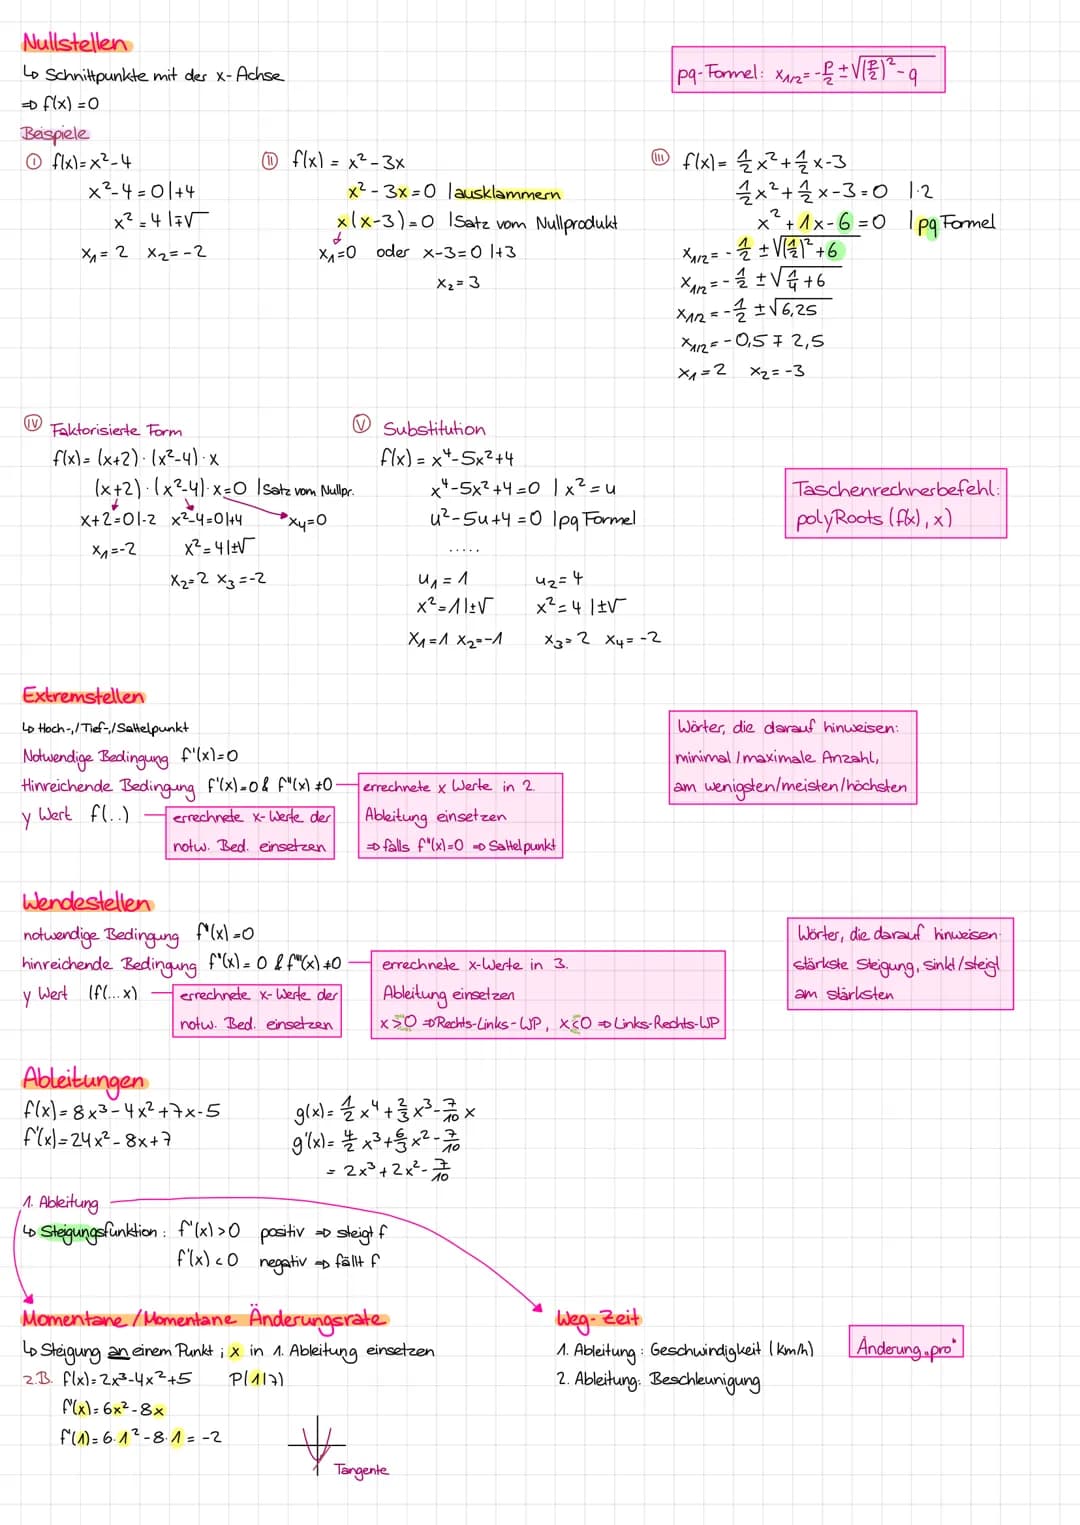 Nullstellen
↳ Schnittpunkte mit der x-Achse
⇒ f(x) = 0
pq-Formel: x₁/₂ = -p/2 ± √((p/2)² - q
Beispiele
Ⓘ f(x) = x² - 4
x² - 4 = 0 | +4
x² = 4 | ∓√
x₁ = 2 x₂ = -2
ⓘⓘ f(x) = x² - 3x
x² - 3x = 0 | ausklammern
x(x-3) = 0 | Satz vom Nullprodukt
x₁ = 0 oder x-3 = 0 | +3
x₂ = 3
(III) f(x) = 1/2 x² + 1/2 x - 3
1/2 x² + 1/2 x - 3 = 0 | ·2
x² + 1x - 6 = 0 | pq Formel
x₁/₂ = - 1/2 ± √(1/2)² + 6
x₁/₂ = - 1/2 ± √1/4 + 6
x₁/₂ = - 1/2 ± √6,25
x₁/₂ = -0,5 ∓ 2,5
x₁ = 2 x₂ = -3
(IV) Faktorisierte Form
f(x) = (x+2) · (x²-4) · x
(x+2) · (x²-4) · x = 0 | Satz vom Nullpr.
x+2 = 0 | -2 x²-4 = 0 | +4 x₄ = 0
x₁ = -2 x² = 4 | ±√
x₂ = 2 x₃ = -2
(V) Substitution
f(x) = x⁴ - 5x² + 4
x⁴ - 5x² + 4 = 0 | x² = u
u² - 5u + 4 = 0 | pq Formel
.....
u₁ = 1 u₂ = 4
x² = 1 | ±√ x² = 4 | ±√
x₁ = 1 x₂ = -1 x₃ = 2 x₄ = -2
Taschenrechnerbefehl:
polyRoots (f(x), x)
Extremstellen
↳ Hoch-,/Tief-,/Sattelpunkt
Notwendige Bedingung f'(x) = 0
Hinreichende Bedingung f'(x) = 0 & f"(x) ≠ 0
y Wert f(..)
errechnete x-Werte der
notw. Bed. einsetzen
errechnete x Werte in 2.
Ableitung einsetzen
⇒ falls f"(x) = 0 ⇒ Sattelpunkt
Wörter, die darauf hinweisen:
minimal/maximale Anzahl,
am wenigsten/meisten/höchsten
Wendestellen
notwendige Bedingung f"(x) = 0
hinreichende Bedingung f"(x) = 0 & f"'(x) ≠ 0
y Wert (f(...x)
errechnete x-Werte der
notw. Bed. einsetzen
errechnete x-Werte in 3.
Ableitung einsetzen
x > 0 ⇒ Rechts-Links-WP, x < 0 ⇒ Links-Rechts-WP
Wörter, die darauf hinweisen:
stärkste Steigung, sinkt/steigt
am stärksten
Ableitungen
f(x) = 8x³ - 4x² + 7x - 5
f'(x) = 24x² - 8x + 7
g(x) = 1/2 x⁴ + 2/3 x³ - 7/10 x
g'(x) = 4/2 x³ + 6/3 x² - 7/10
= 2x³ + 2x² - 7/10
1. Ableitung
↳ Steigungsfunktion: f'(x) > 0 positiv ⇒ steigt f
f'(x) < 0 negativ ⇒ fällt f
Momentane/Momentane Änderungsrate
↳ Steigung an einem Punkt; x in 1. Ableitung einsetzen
z.B. f(x) = 2x³ - 4x² + 5 P(1|7)
f'(x) = 6x² - 8x
f'(1) = 6·1² - 8·1 = -2
Tangente
Weg-Zeit
1. Ableitung: Geschwindigkeit (km/h)
2. Ableitung: Beschleunigung
Änderung „pro"